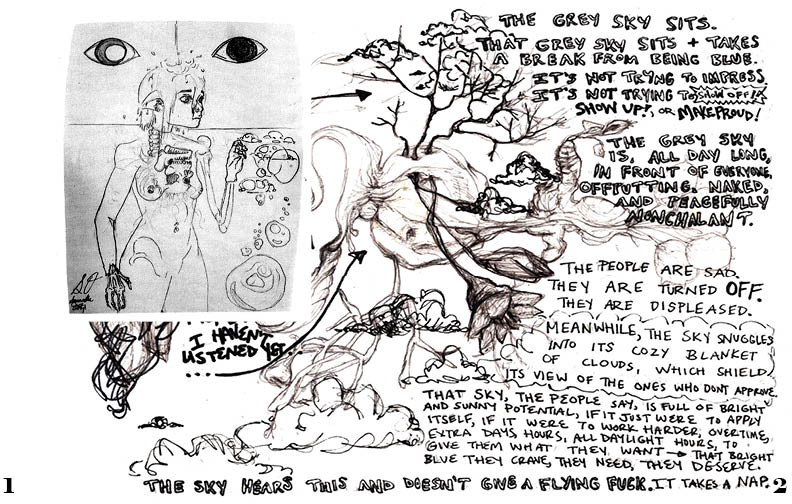 THE GREY SKY SITS.
THAT GREY SKY SITS + TAKES
A BREAK FROM BEING BLUE.
IT'S NOT TRYING TO IMPRESS.
IT'S NOT TRYING TO SHOW OFF!
SHOW UP!, OR MAKE PROUD!
THE GREY SKY
IS, ALL DAY LONG,
IN FRONT OF EVERYONE,
OFFPUTTING. NAKED,
AND PEACEFULLY
NONCHALANT.
THE PEOPLE ARE SAD.
THEY ARE TURNED OFF.
THEY ARE DISPLEASED.
I HAVEN'T
LISTENED YET...
MEANWHILE, THE SKY SNUGGLES
INTO ITS COZY BLANKET
OF CLOUDS, WHICH SHIELD
ITS VIEW OF THE ONES WHO DON'T APPROVE.
THAT SKY, THE PEOPLE SAY, IS FULL OF BRIGHT
AND SUNNY POTENTIAL, IF IT JUST WERE TO APPLY
ITSELF, IF IT WERE TO WORK HARDER, OVERTIME,
EXTRA DAYS, HOURS, ALL DAYLIGHT HOURS, TO
GIVE THEM WHAT THEY WANT → THAT BRIGHT
BLUE THEY CRAVE, THEY NEED, THEY DESERVE.
THE SKY HEARS THIS AND DOESN'T GIVE A FLYING FUCK. IT TAKES A NAP.
1
2